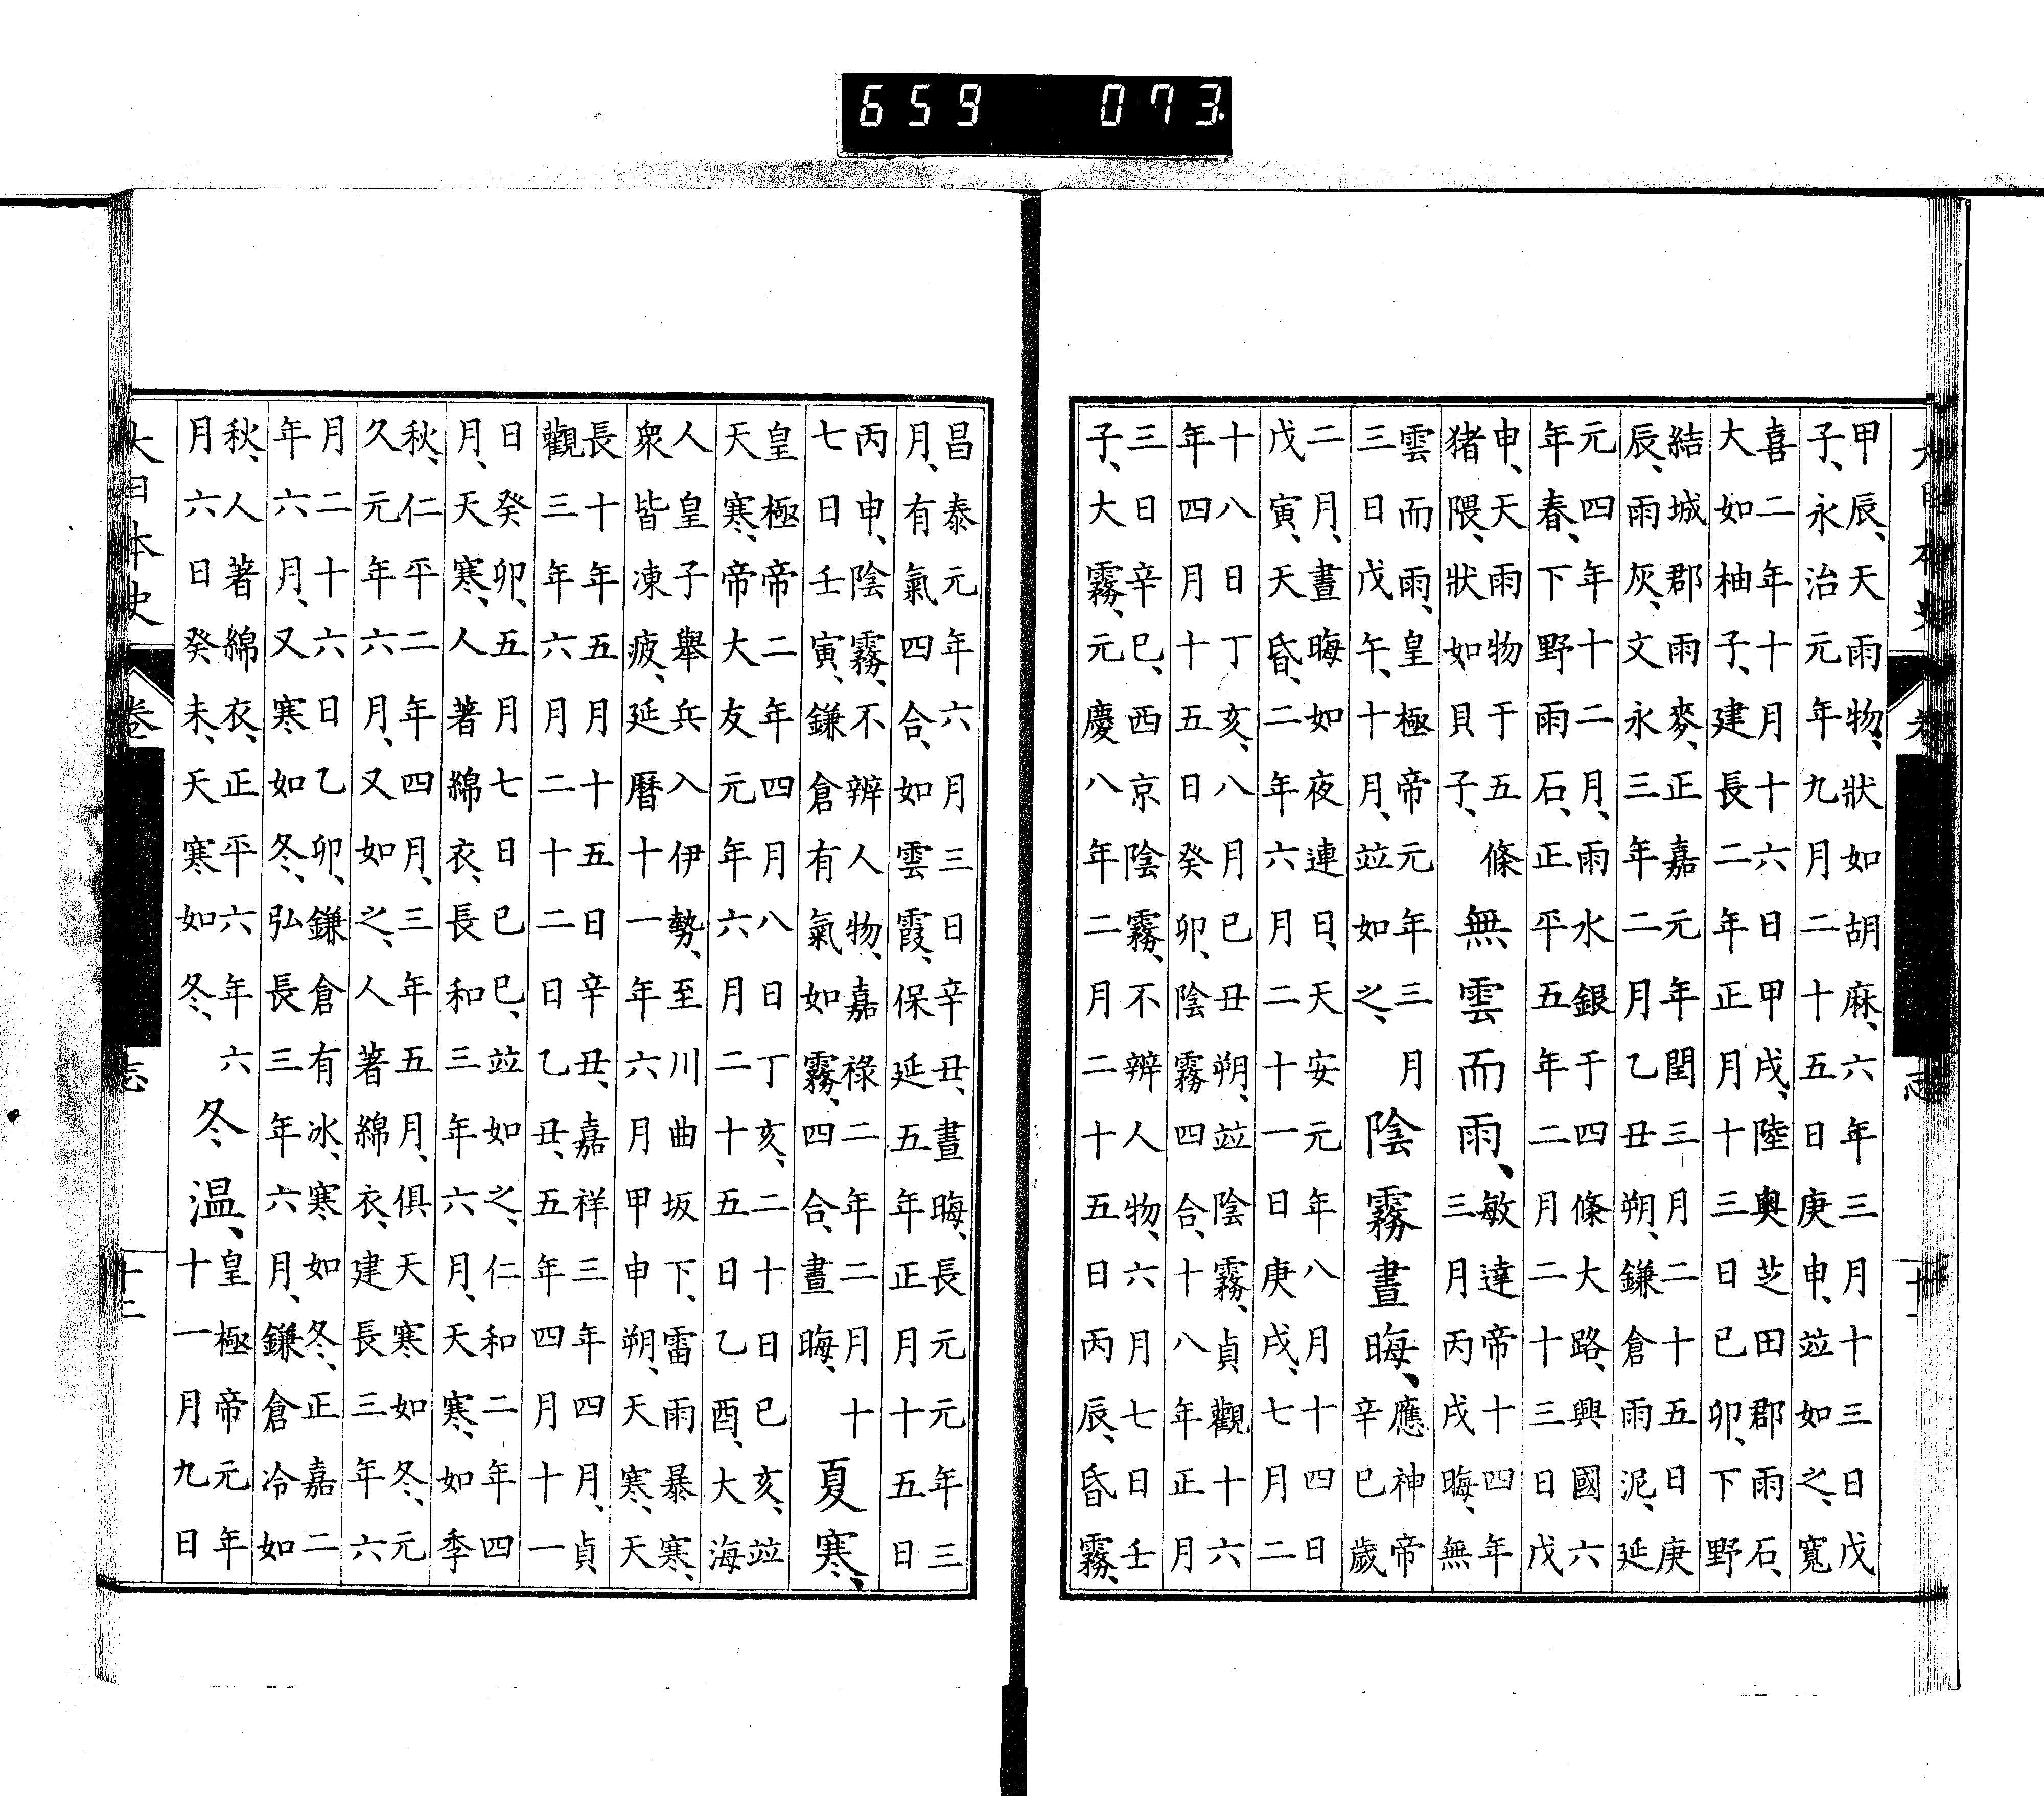 大日本史 卷 志 十一
甲辰、天雨物、狀如胡麻、六年三月十三日戊
子、永治元年九月二十五日庚申、竝如之、寬
喜二年十月十六日甲戌、陸奧芝田郡雨石、
大如柚子、建長二年正月十三日己卯、下野
結城郡雨麥、正嘉元年閏三月二十五日庚
辰、雨灰、文永三年二月乙丑朔、鎌倉雨泥、延
元四年十二月、雨水銀于四條大路、興國六
年春、下野雨石、正平五年二月二十三日戊
申、天雨物于五條
猪隈、狀如貝子、
無雲而雨、
敏達帝十四年
三月丙戌晦、無
雲而雨、皇極帝元年三月
三日戊午、十月、竝如之、
陰霧晝晦、
應神帝
辛巳歲
二月、晝晦如夜連日、天安元年八月十四日
戊寅、天昏、二年六月二十一日庚戌、七月二
十八日丁亥、八月己丑朔、竝陰霧、貞觀十六
年四月十五日癸卯、陰霧四合、十八年正月
三日辛巳、西京陰霧、不辨人物、六月七日壬
子、大霧、元慶八年二月二十五日丙辰、昏霧、
昌泰元年六月三日辛丑、晝晦、長元元年三
月、有氣四合、如雲霞、保延五年正月十五日
丙申、陰霧、不辨人物、嘉祿二年二月十
七日壬寅、鎌倉有氣如霧、四合、晝晦、
夏寒、
皇極帝二年四月八日丁亥、二十日己亥、竝
天寒、帝大友元年六月二十五日乙酉、大海
人皇子舉兵入伊勢、至川曲坂下、雷雨暴寒、
衆皆凍疲、延曆十一年六月甲申朔、天寒、天
長十年五月十五日辛丑、嘉祥三年四月、貞
觀三年六月二十二日乙丑、五年四月十一
日癸卯、五月七日己巳、竝如之、仁和二年四
月、天寒、人著綿衣、長和三年六月、天寒、如季
秋、仁平二年四月、三年五月、俱天寒如冬、元
久元年六月、又如之、人著綿衣、建長三年六
月二十六日乙卯、鎌倉有冰、寒如冬、正嘉二
年六月、又寒如冬、弘長三年六月、鎌倉冷如
秋、人著綿衣、正平六年六
月六日癸未、天寒如冬、
冬温、
皇極帝元年
十一月九日
大日本史 卷 志 十二
659 073